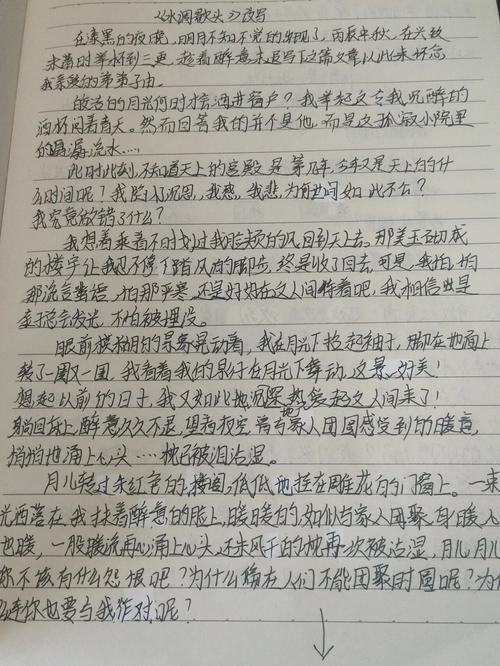 《水调歌头》改写
在漆黑的夜晚，明月不知不觉的出现了，丙辰中秋，在兴致
未着时举杯到三更，趁着醉意未退写下这篇文章以此来怀念
我亲爱的弟弟子由。
皎洁的月光何时才会洒进窗户？我举起这令我沉醉的
酒杯问着青天。然而回答我的并不是他，而是这孤寂小院里
的潺潺流水……
此时此刻，不知道天上的宫殿是第几年，今年又是天上的什
么时间呢？我陷入沉思，我愁，我悲为何世间如此不公？
我究竟做错了什么？
我想着乘着不时划过我脸颊的风回到天上去，那美玉砌成
的楼宇让我忍不住了踏风而的脚步，终是收了回去，可是，我怕，怕
那流言蜚语，怕那严寒，还是好好在这人间待着吧，我相信只是
金子总会发光，不怕被埋没。
眼前模糊的景象晃动着，我在月光下抬起袖子，脚在地面上
转了一圈又一圈，我看着我的身影在月光下舞动，这景，好美！
想起以前的日子，我又如此地深深热爱起这人间来了！
躺回床上，醉意久久不退，望着夜空，曾与家人团圆感受到的暖意，
悄悄地涌上心头……枕已被泪沾湿。
月儿转过朱红色的楼阁，低低地挂在雕花的门窗上。一束
光洒落在我扶着醉意的脸上，暖暖的，如似与家人团聚，身暖，心
也暖，一股暖流再次涌上心头，还未风干的枕再一次被沾湿，月儿月儿
你不该有什么怨恨吧？为什么偏在人们不能团聚时圆呢？为什
么连你也要与我作对呢？